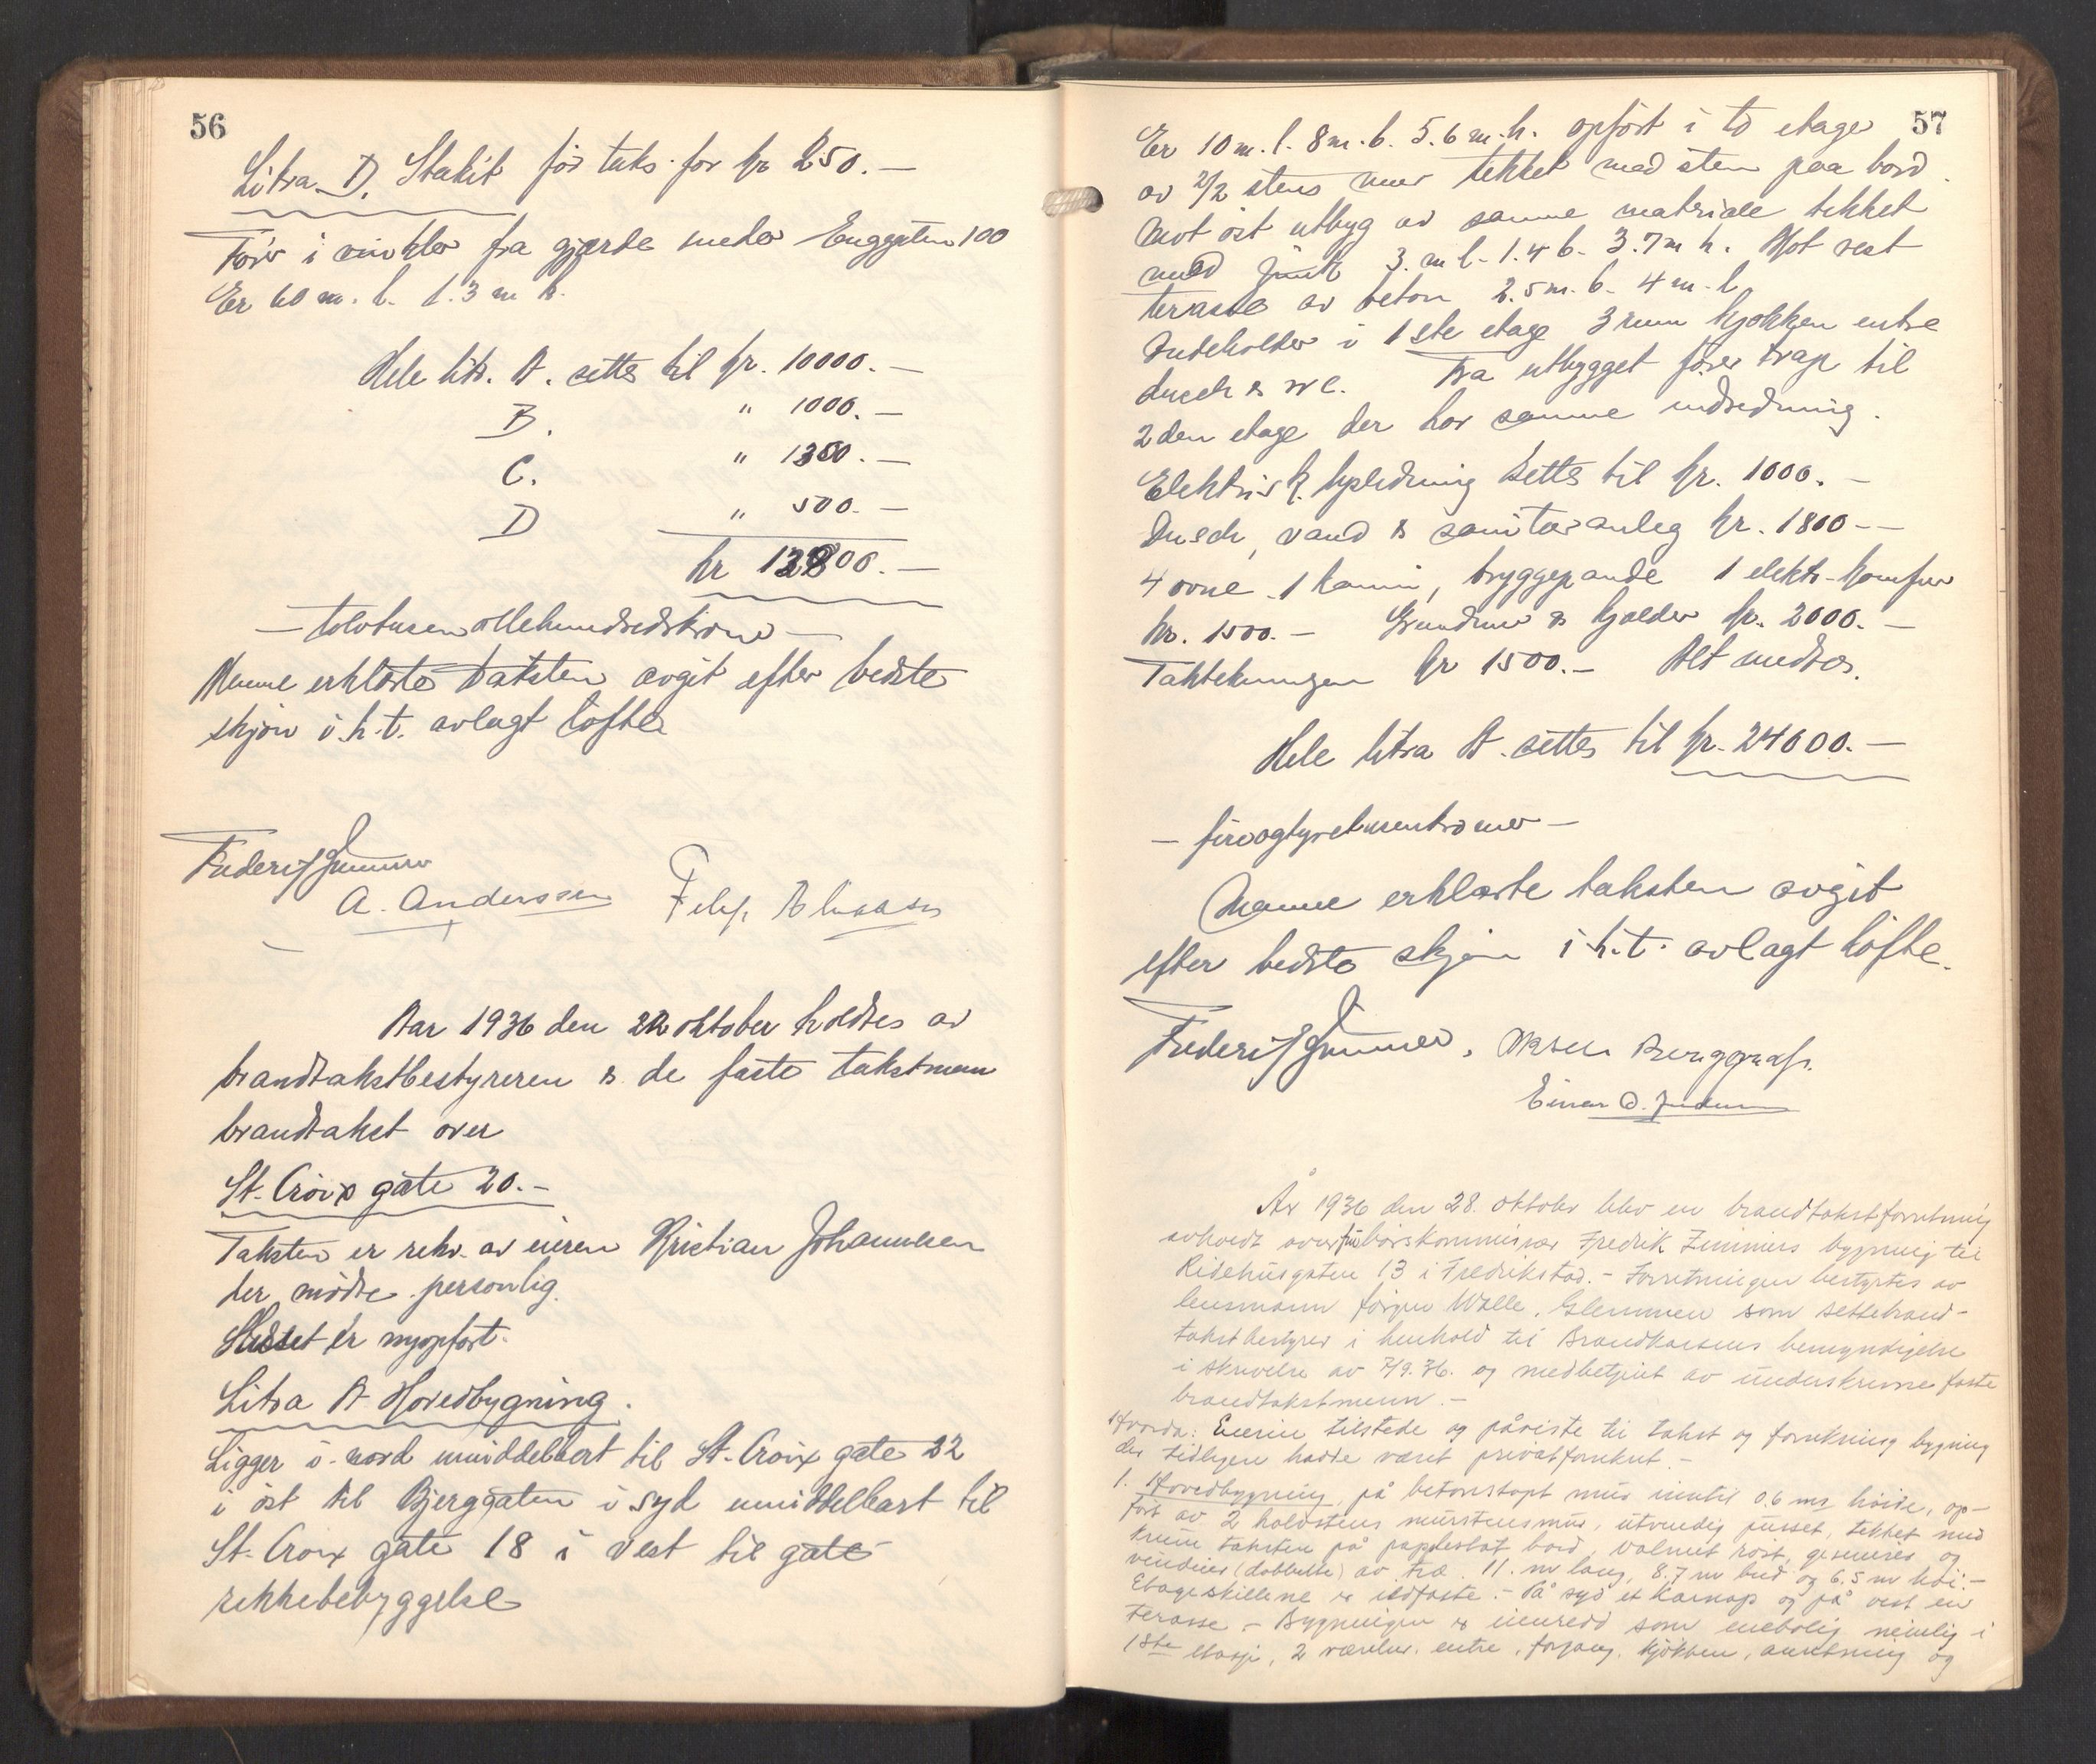 56
Litra D. Stakit för taks. for kr 250.—
Förer i vinkler fra gjærde meder Enggaten 100
Er 60 m. l. 1.3 m h.
Hele litr. A. settes til kr. 10000.—
B. " 1000.—
C. " 1300.—
D " 500.—
kr 12800.—
— tolvtusenottehundredekroner —
Mænne erklærte taksten avgit efter bedste
skjön i.h.t. avlagt löfte
A. Anderssen
Aar 1936 den 22 oktober holdtes av
brandtakstbestyreren & de faste takstmænn
brandtakst over
St. Croix gate 20.—
Taksten er rekv. av eieren Kristian Johannesen
der mödte personlig.
Huset er nyopfört.
Litra A Hovedbygning.
Ligger i nord umiddelbart til St. Croix gate 22
i öst til Bjerggaten i syd umiddelbart til
St. Croix gate 18 i vest til gate
rekkebebyggelse
57
Er 10 m. l. 8 m. b. 5.6 m. h. opfört i to etager
av 2/2 stens mur tekket med sten paa bord.
Mot öst utbyg av samme matriale tekket
med 3. m l. 1.4 b. 3.7 m h. Mot vest
terasse av beton 2.5 m. b. 4 m. l.
Indeholder i 1ste etage 3 rum kjøkken entre
dusch & wc. Fra utbygget förer trap til
2den etage der har samme indredning.
Elektrisk. opledning settes til kr. 1000.—
Dusch, vand & sanitæranleg kr. 1800.—
4 ovne 1 kamin, bryggepande 1 elektr. komfur
kr. 1500.— Grundmur & kjelder kr. 2000.—
Taktekningen kr 1500.— Alt medtas.
Hele litra A. settes til kr. 24000.—
— fireogtyvetusenkroner —
Mænne erklærte taksten avgit
efter bedste skjön i.h.t. avlagt löfte.
År 1936 den 28. oktober blev en brandtakstforretning
avholdt over havnekommisær Fredrik Zimmers bygning til
Ridehusgaten 13 i Fredrikstad. — Forretningen bestyrtes av
lensmann Jörgen Walle, Glemmen som settebrand-
takstbestyrer i henhold til Brandkassens bemyndigelse
i skrivelse av 7/9.36. og medbetjent av underskrevne faste
brandtakstmenn. —
Hvorda: Eieren tilstede og påviste til takst og forsikring bygning
der tidligere hadde været privatforsikret. —
1. Hovedbygning, på betonstöpt mur inntil 0.6 mr höide, op-
fört av 2 halvstens murstensmur, utvendig pusset, tekket med
krum taksten på papbeslåt bord, valmet röst, gesimser og
vinduer (dobbelte) av træ. 11. m lang, 8.7 m bred og 6.5 m höi. —
Etageskillene er ildfaste. — På syd et karnap og på vest en
terasse. — Bygningen er innredd som enebolig nemlig i
1ste etasje, 2 værelser, entre, forgang, kjökken, anretning og